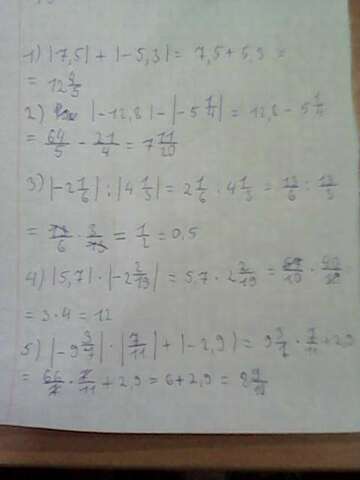 1) |7,5| + |-5,3| = 7,5 + 5,3 =
= 12 4/5
2) |-12,8| - |-5 1/4| = 12,8 - 5 1/4
= 64/5 - 21/4 = 7 11/20
3) |-2 1/6| : |4 1/3| = 2 1/6 : 4 1/3 = 13/6 : 13/3
= 13/6 · 3/13 = 1/2 = 0,5
4) |5,7| · |-2 2/19| = 5,7 · 2 2/19 = 57/10 · 40/19
= 3 · 4 = 12
5) |-9 3/7| · |7/11| + |-2,9| = 9 3/7 · 7/11 + 2,9
= 66/7 · 7/11 + 2,9 = 6 + 2,9 = 8 9/10